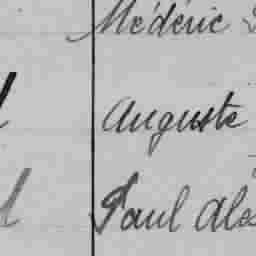 Médéric
Auguste
Paul